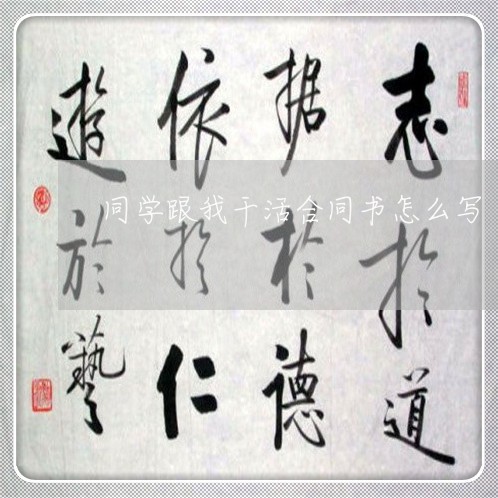 志於道
据於德
依於仁
遊於藝
同学跟我干活合同书怎么写